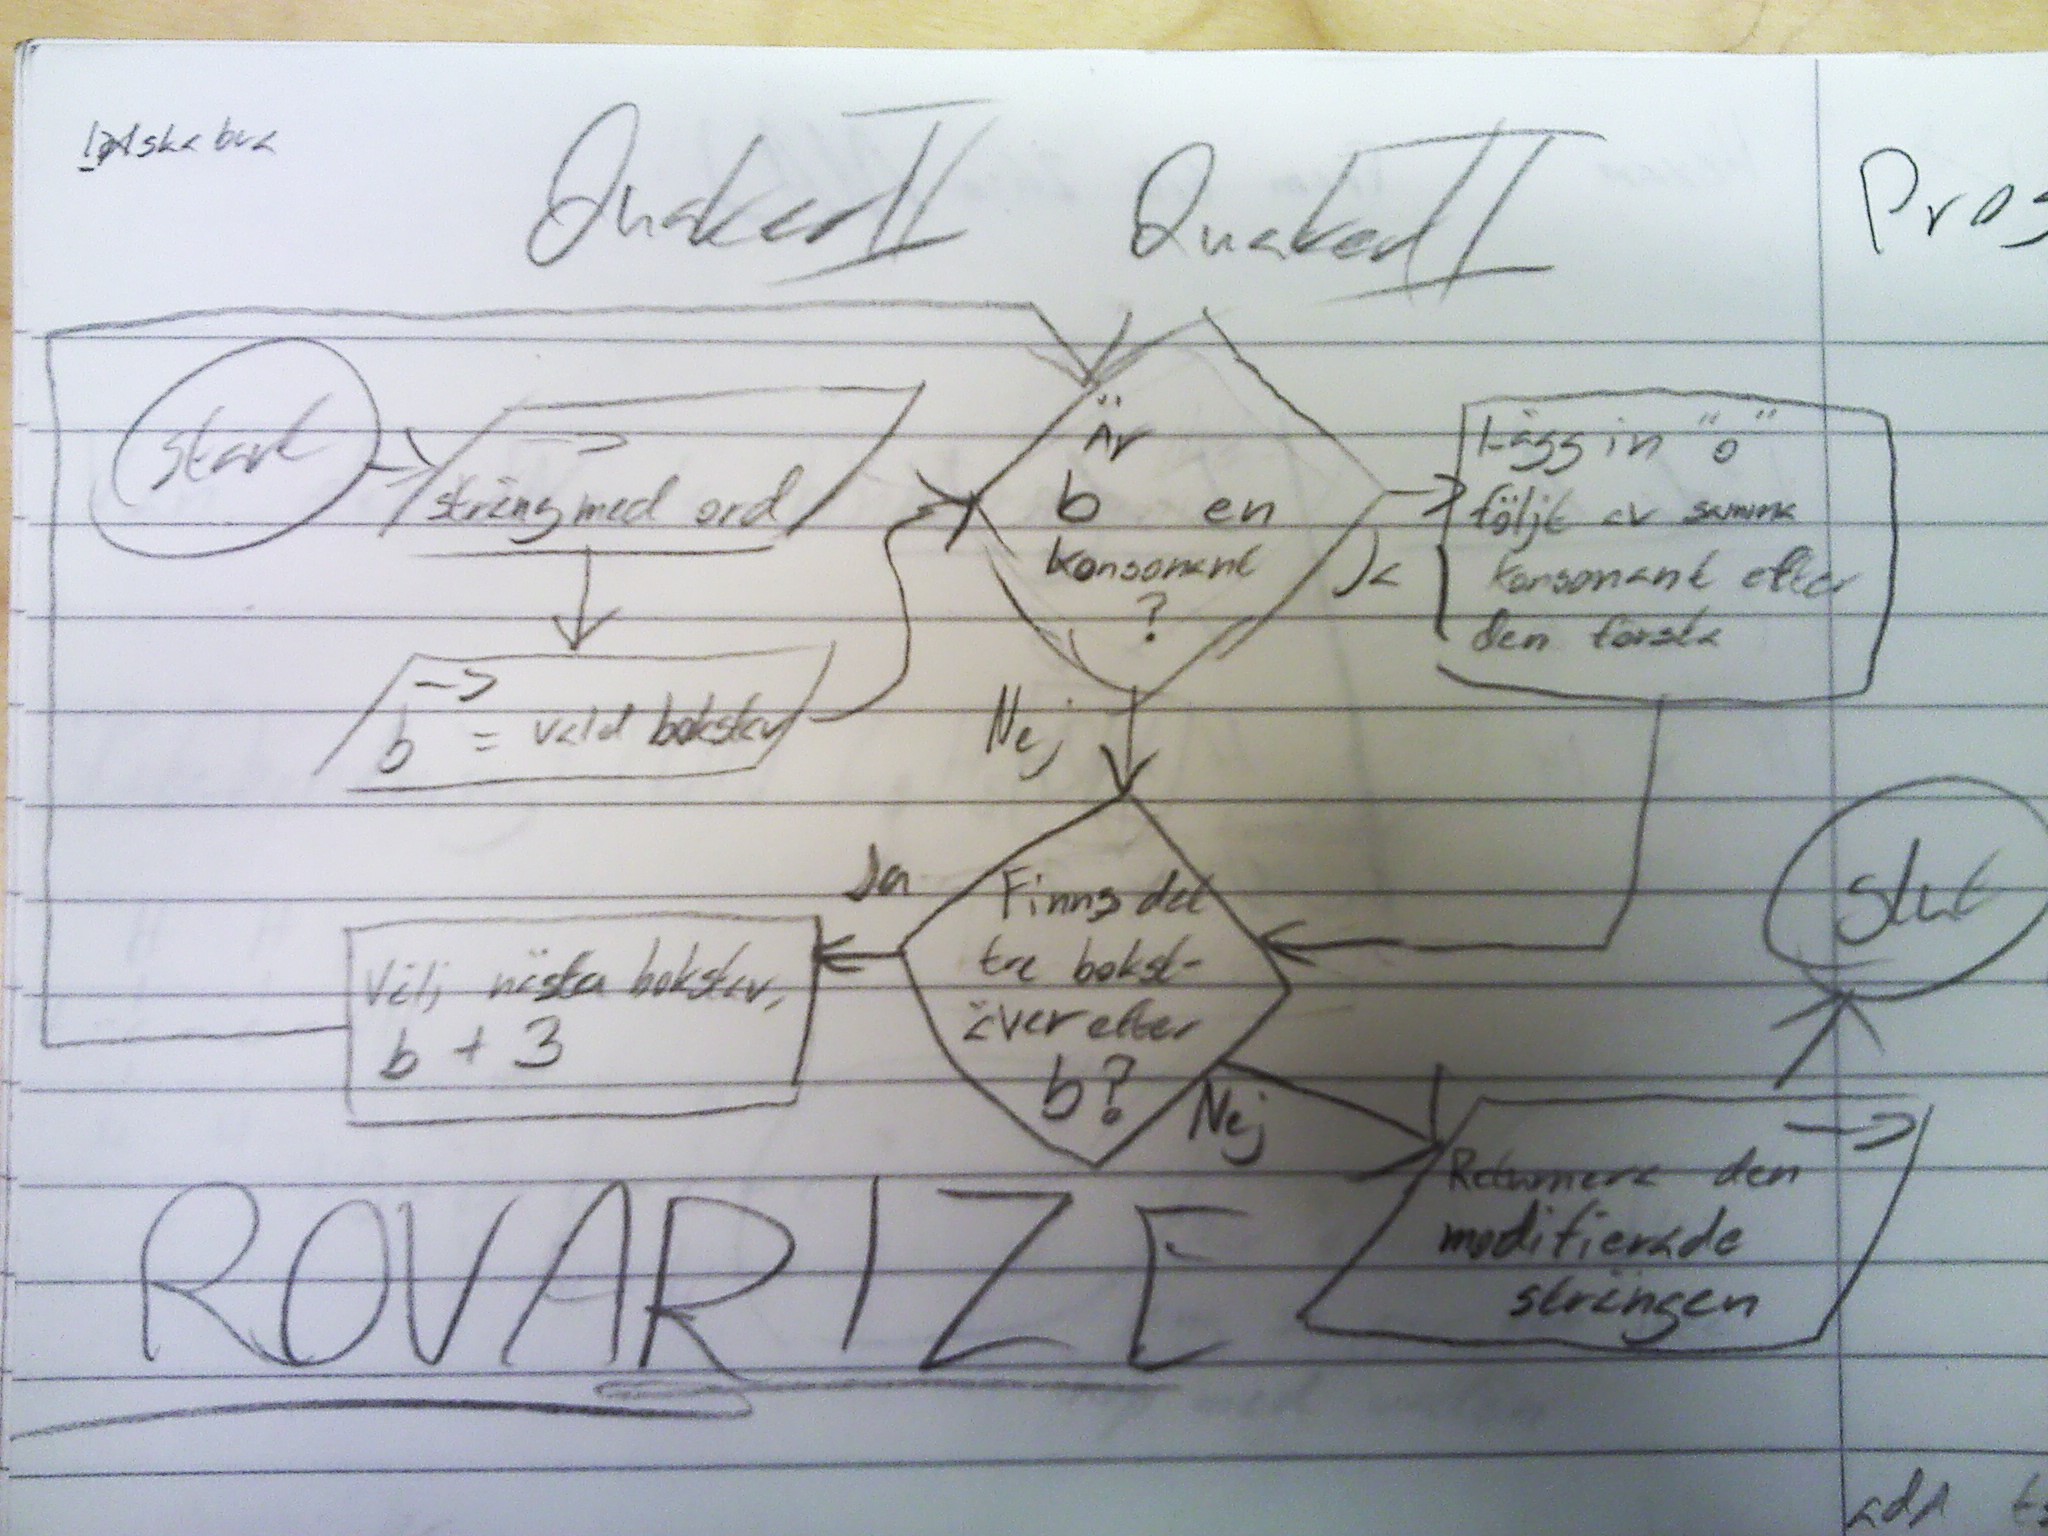 Quaked II Quaked II
Pros
start
sträng med ord
b = vald bokstav
Är
b en
konsonant
?
Ja
Lägg in "o"
följt av samma
konsonant efter
den första
Nej
Finns det
tre bokst-
äver efter
b?
Ja
Välj nästa bokstav,
b + 3
Nej
Returnera den
modifierade
strängen
Slut
ROVARIZE
add